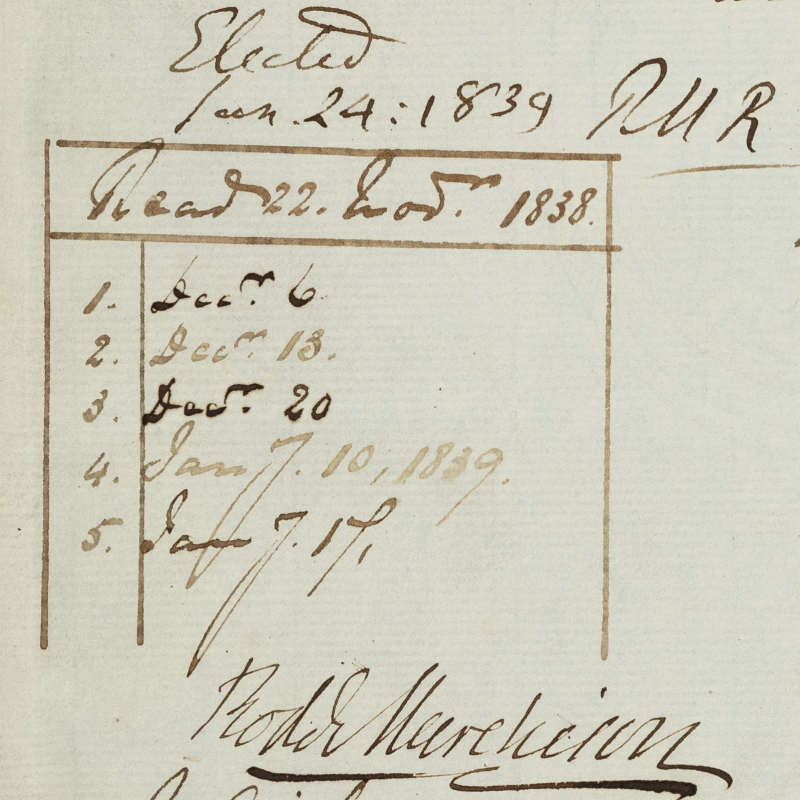 Elected
Jan. 24: 1839
Read 22. Novr. 1838.
1. Decr. 6
2. Decr. 13.
3. Decr. 20
4. Jany. 10, 1839.
5. Jany. 17,
Rodk Murchison